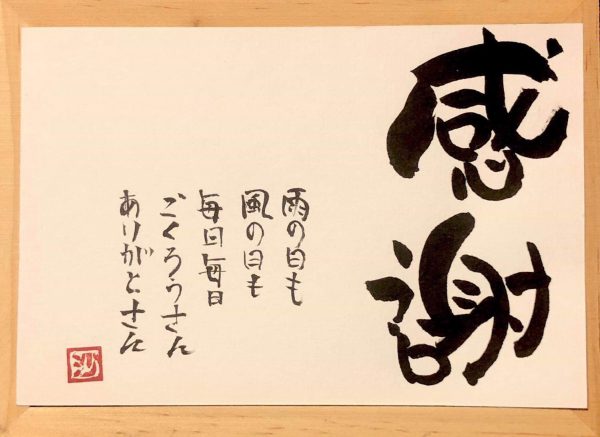 感謝
雨の日も
風の日も
毎日毎日
ごくろうさん
ありがとさん